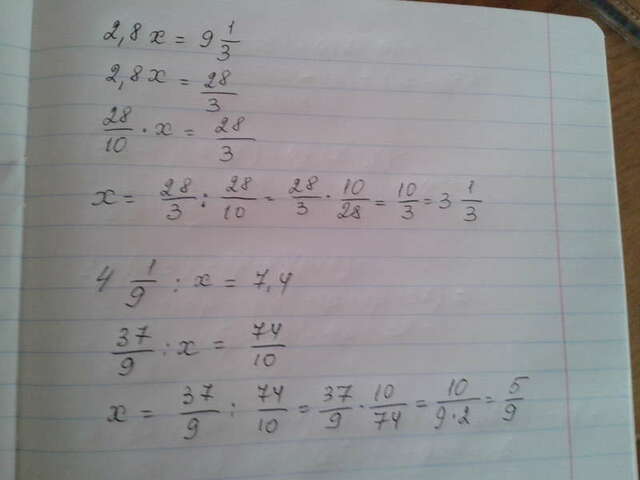 2,8x = 9 1/3
2,8x = 28/3
28/10 · x = 28/3
x = 28/3 : 28/10 = 28/3 · 10/28 = 10/3 = 3 1/3
4 1/9 : x = 7,4
37/9 : x = 74/10
x = 37/9 : 74/10 = 37/9 · 10/74 = 10/9·2 = 5/9